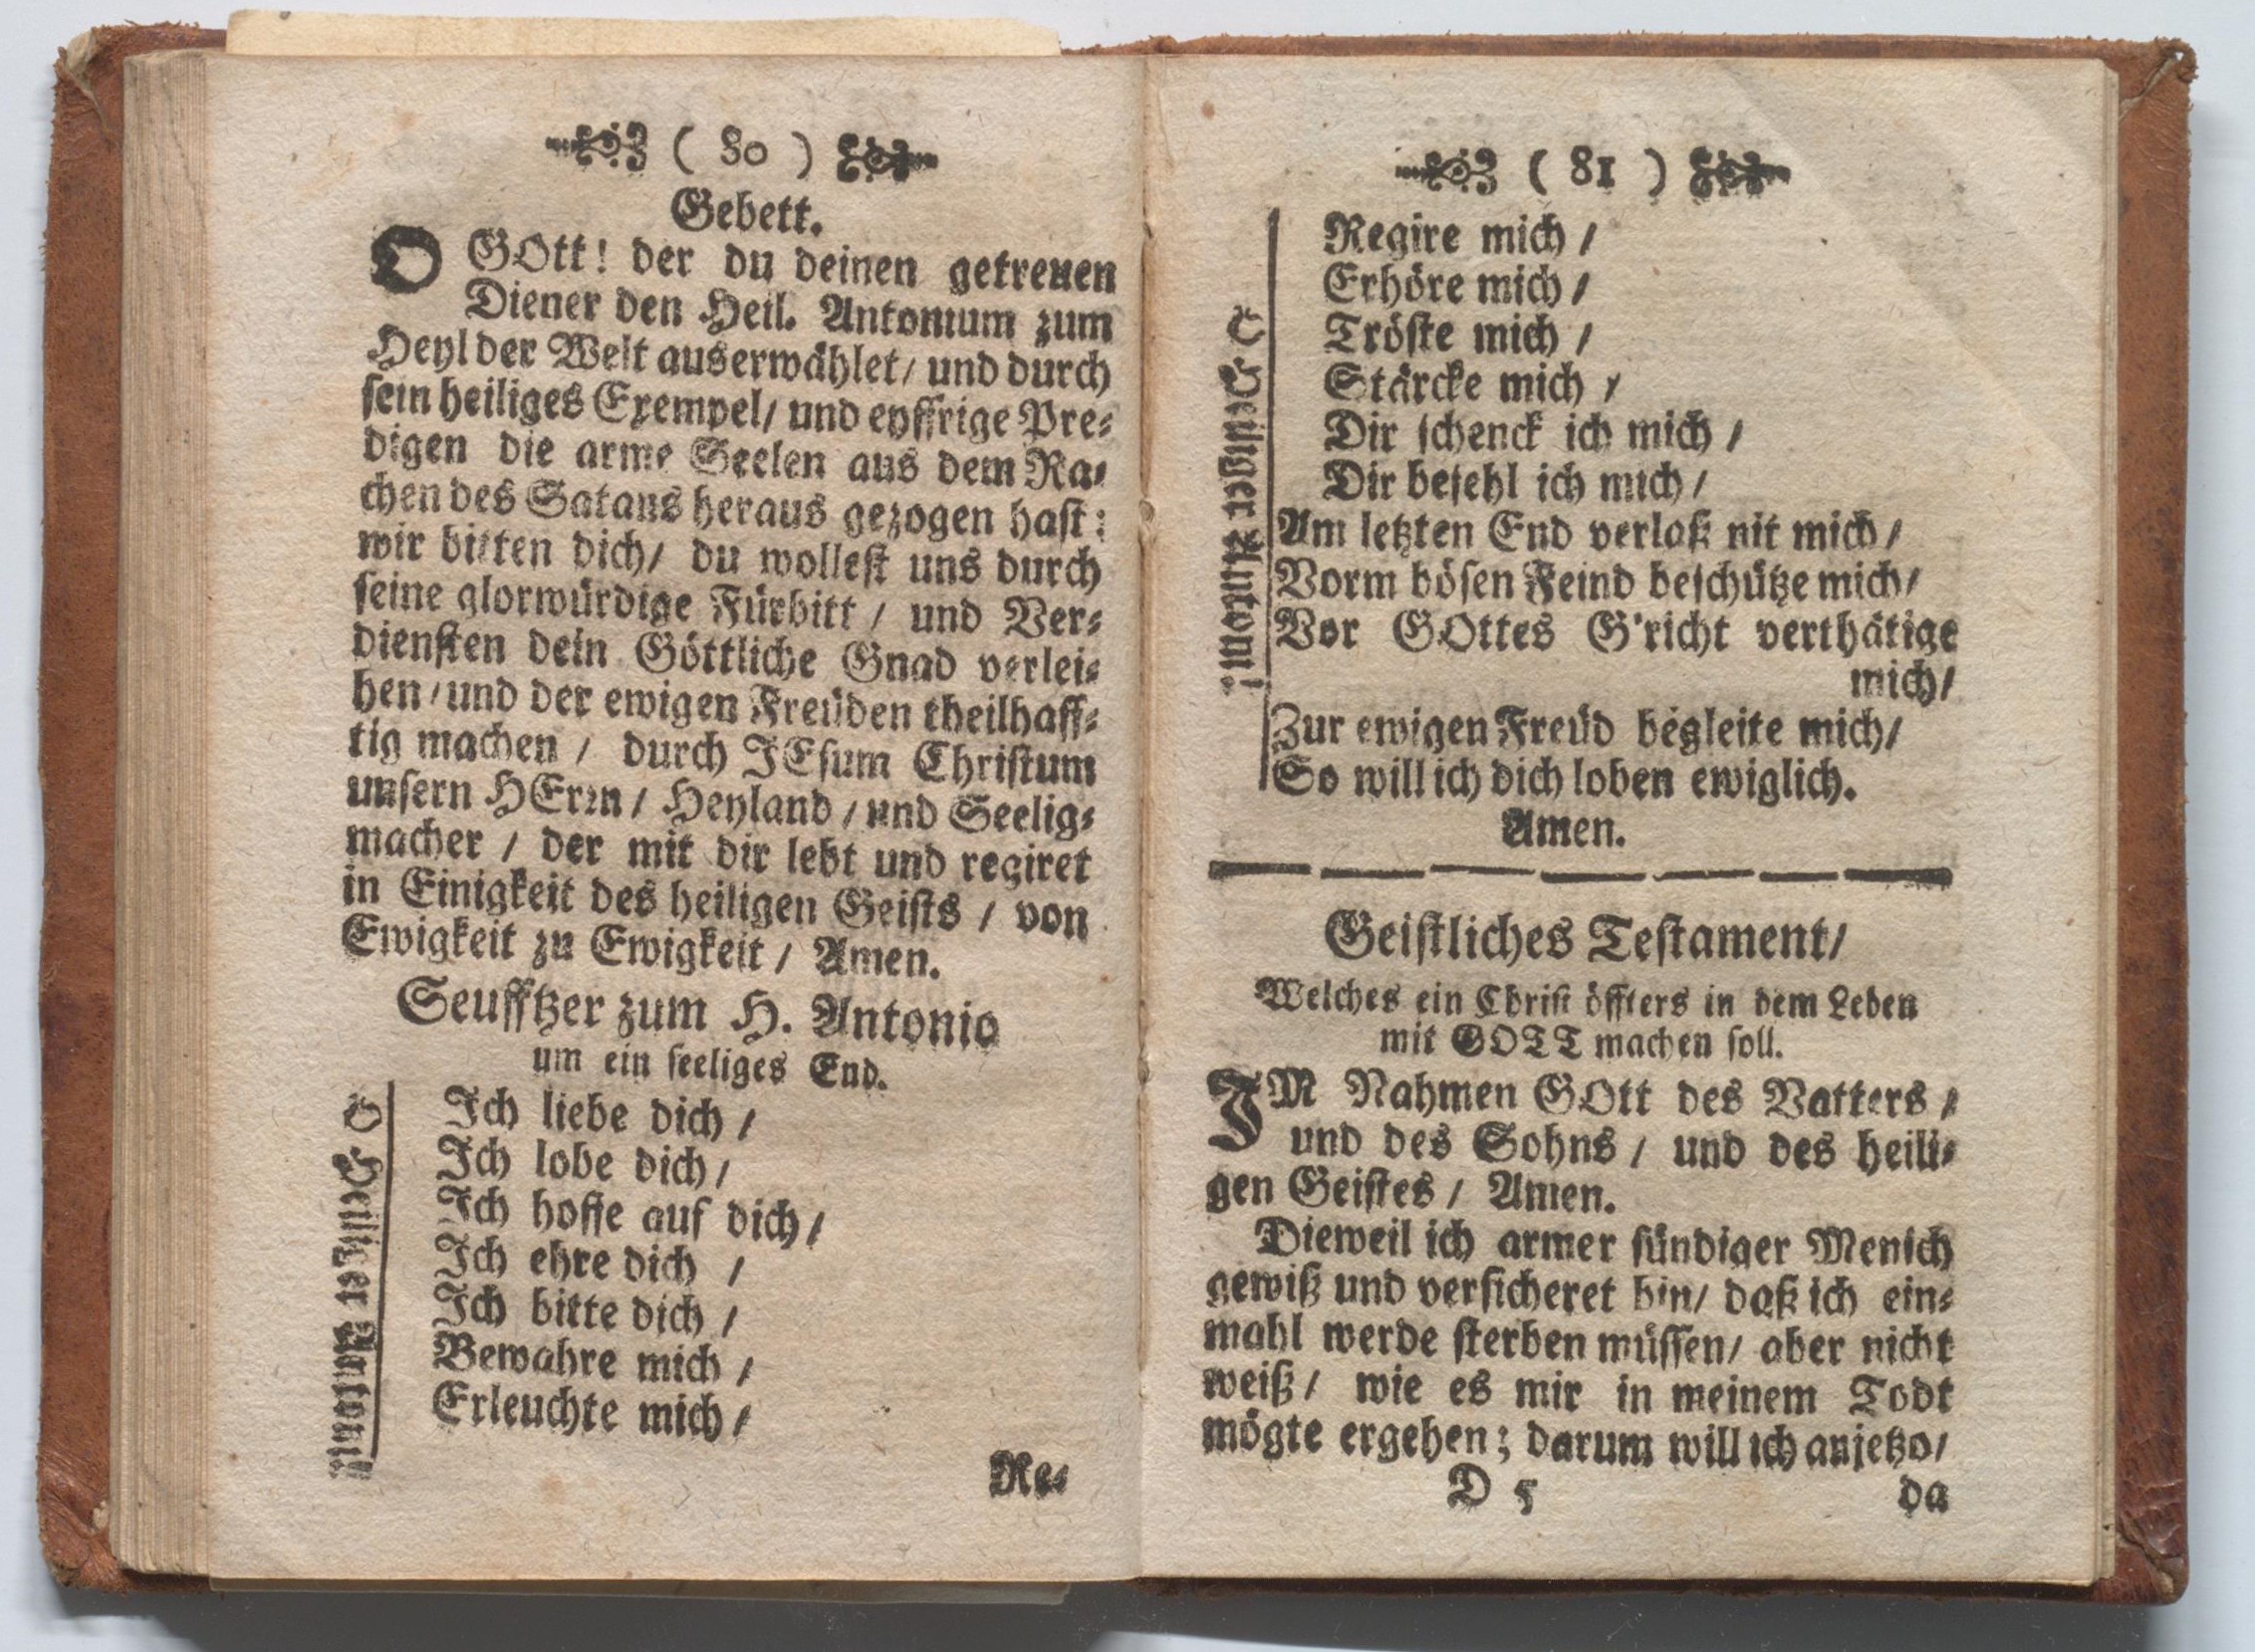 ( 80 )
Gebett.
O GOtt! der du deinen getreuen
Diener den Heil. Antonium zum
Heyl der Welt auserwählet/ und durch
sein heiliges Exempel/ und eyffrige Pre⸗
digen die arme Seelen aus dem Ra⸗
chen des Satans heraus gezogen hast:
wir bitten dich/ du wollest uns durch
seine glorwürdige Fürbitt / und Ver⸗
diensten dein Göttliche Gnad verlei⸗
hen / und der ewigen Freüden theilhaff⸗
tig machen / durch JEsum Christum
unsern HErrn / Heyland / und Seelig⸗
macher / der mit dir lebt und regiret
in Einigkeit des heiligen Geists / von
Ewigkeit zu Ewigkeit / Amen.
Seufftzer zum H. Antonio
um ein seeliges End.
O Heiliger Antoni!
Ich liebe dich /
Ich lobe dich /
Ich hoffe auf dich /
Ich ehre dich /
Ich bitte dich /
Bewahre mich /
Erleuchte mich /
Re⸗
( 81 )
O Heiliger Antoni!
Regire mich /
Erhöre mich /
Tröste mich /
Stärcke mich /
Dir schenck ich mich /
Dir befehl ich mich /
Am letzten End verlaß nit mich /
Vorm bösen Feind beschütze mich /
Vor GOttes G'richt verthätige
mich /
Zur ewigen Freüd begleite mich /
So will ich dich loben ewiglich.
Amen.
Geistliches Testament /
Welches ein Christ öffters in dem Leben
mit GOTT machen soll.
IM Nahmen GOtt des Vatters /
und des Sohns / und des heili⸗
gen Geistes / Amen.
Dieweil ich armer sündiger Mensch
gewiß und versicheret bin / daß ich ein⸗
mahl werde sterben müssen / aber nicht
weiß / wie es mir in meinem Todt
mögte ergehen; darum will ich anjetzo /
D 5 da